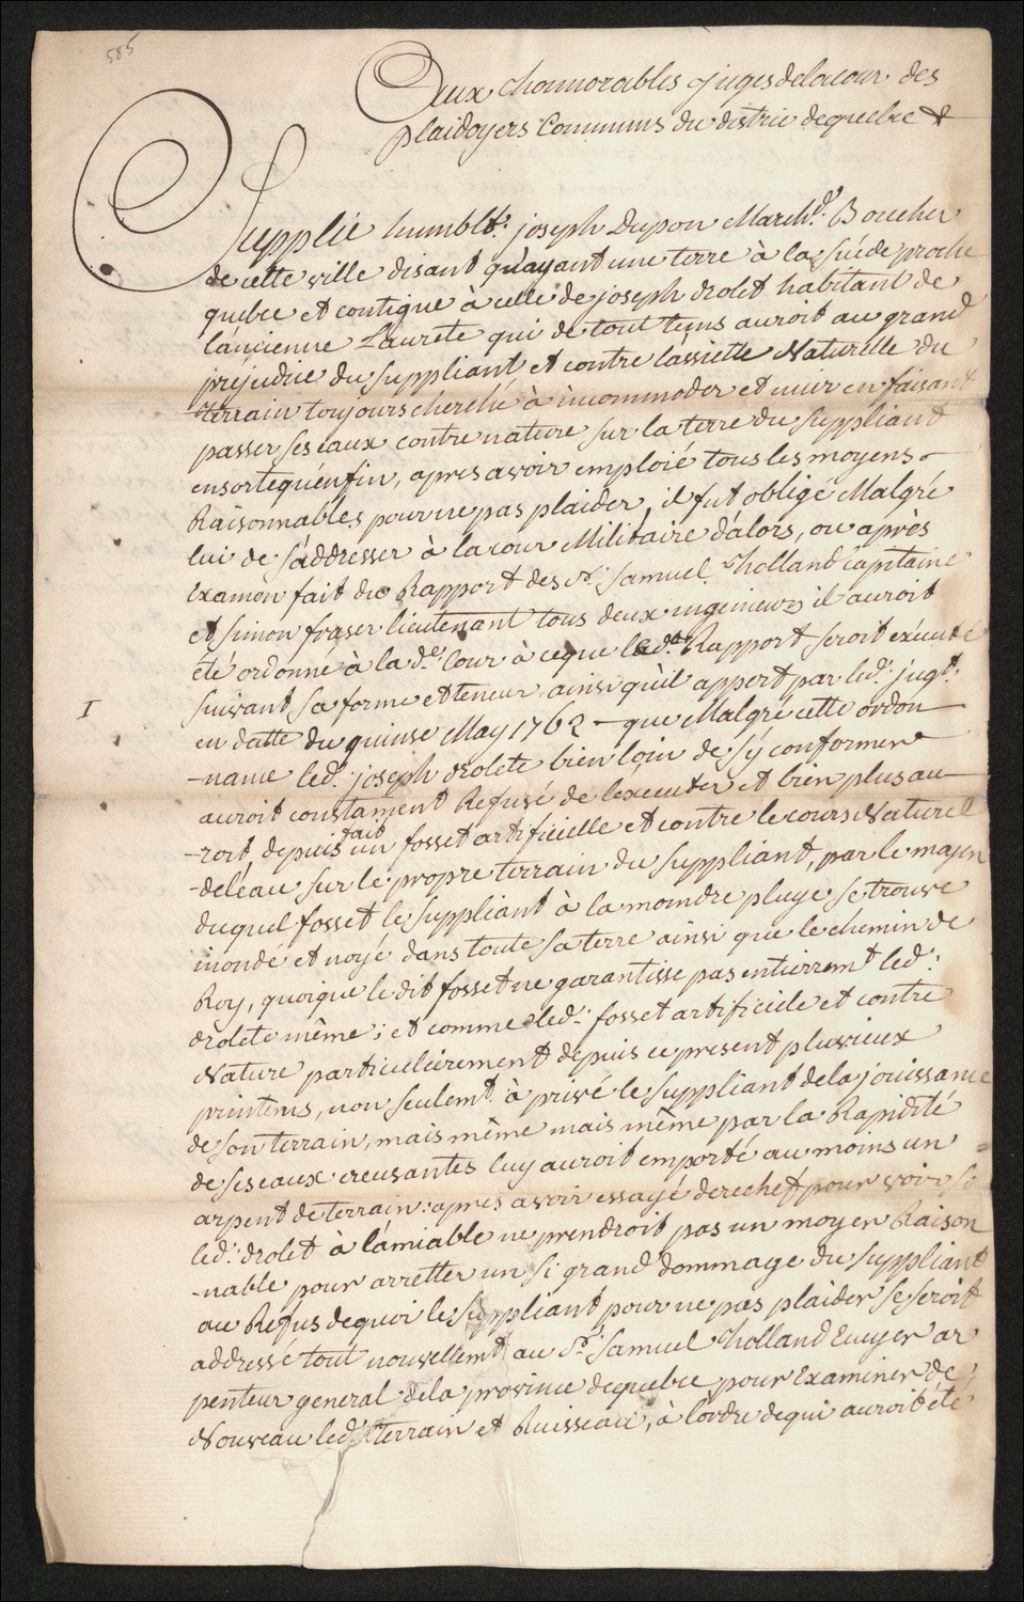 585
Aux honnorables juges de la cour des
plaidoyers Communs du districe de quebec &
Supplie humblt. joseph Dupon Marchd. Boucher
de cette ville disant qu'ayant une terre à la Suéde proche
quebec et contigue à celle de joseph drolet habitant de
l'ancienne Laurete qui de tout tems auroit au grand
prejudice du suppliant et contre l'assiette Naturelle du
terrain toujours cherché à incommoder et nuir en faisant
passer ses eaux contre nature sur la terre du suppliant
ensortequ'enfin, apres avoir emploié tous les moyens
Raisonnables pour ne pas plaider, il fut obligé Malgré
lui de s'addresser à la cour Militaire d'alors, ou après
examen fait du Rapport des Sr. Samuel holland Capitaine
et simon fraser lieutenant tous deux ingenieurs il auroit
été ordonné à la de. Cour à ceque led. Rapport seroit exécuté
suivant sa forme et teneur ainsi qu'il appert par led. jugt.
I
en datte du quinse May 1762 - que Malgré cette ordon
-nance led. joseph drolete bien loin de s'y conformer
auroit constament Refusé de l'exécuter et bien plus au
-roit, depuis fait un fosset artificielle et contre le cours Naturel
-deleau sur le propre terrain du suppliant, par le mojen
duquel fosset le suppliant à la moindre pluye se trouve
inondé et noyé dans toute sa terre ainsi que le chemin de
Roy, quoique le dit fosset ne garantisse pas entierremt led.
drolete même; et comme led. fosset artificiele et contre
Nature particuleirement depuis ce present pluvieux
printems, non seulemt. à privé le suppliant de la jouissance
de son terrain, mais même mais même par la Rapidité
de ses eaux creusantes luy auroit emporté au moins un
arpent de terrain: apres avoir essayé derechef pour voir si
led. drolet à l'amiable ne prendroit pas un moyen Raison
-nable pour arretter un si grand dommage du suppliant
au Refus dequoi le suppliant pour ne pas plaider se seroit
addressé tout nouvellemt au Sr. Samuel holland Ecuyer ar
penteur general de la province de quebec pour Examiner de
Nouveau led. terrain et Ruisseau, à l'ordre dequi auroit été